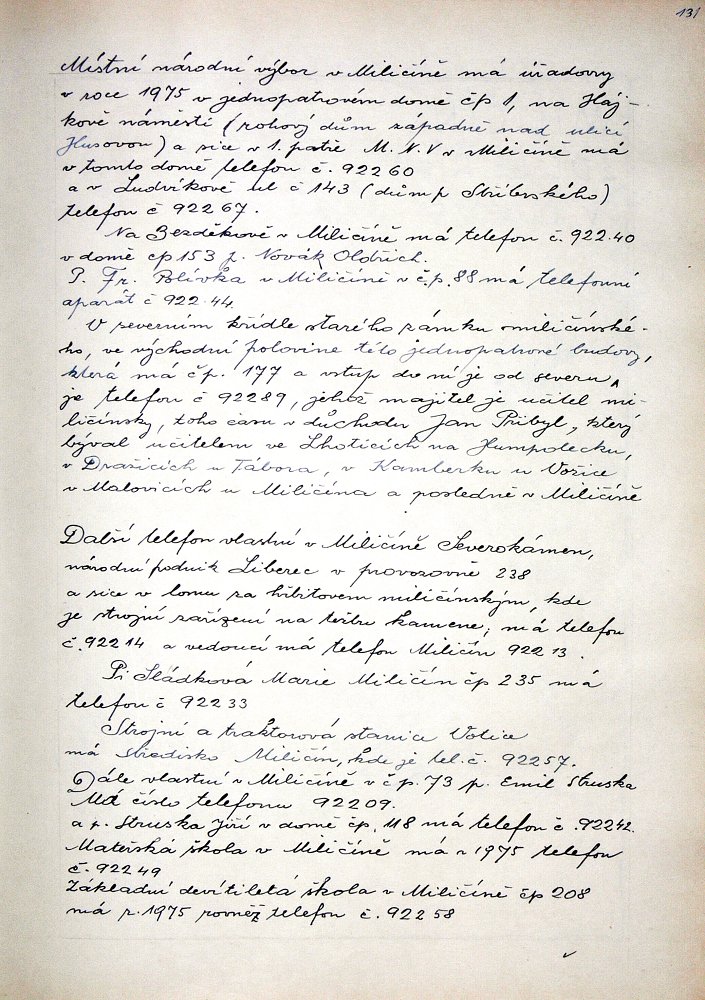 131
Místní národní výbor v Miličíně má úřadovny
v roce 1975 v jednopatrovém domě čp 1, na Háj-
kově náměstí (rohový dům západně nad ulicí
Husovou) a sice v 1. patře M. N. V v Miličíně má
v tomto domě telefon č. 92260
a v Ludvíkově ul č 143 (dům p Stříberského)
telefon č 92267.
Na Bezděkově v Miličíně má telefon č. 922.40
v domě čp 153 p. Novák Oldřich.
P. Fr. Polívka v Miličíně v č.p. 88 má telefonní
aparát č 922.44.
V severním křídle starého zámku miličínské-
ho, ve východní polovině této jednopatrové budovy,
která má čp. 177 a vstup do ní je od severu,
je telefon č 92289, jehož majitel je učitel mi-
ličínský, toho času v důchodu Jan Přibyl, který
býval učitelem ve Lhoticích na Humpolecku,
v Dražicích u Tábora, v Kamberku u Vožice
v Malovicích u Miličína a posledně v Miličíně
Další telefon vlastní v Miličíně Severokámen,
národní podnik Liberec v provozovně 238
a sice v lomu za hřbitovem miličínským, kde
je strojní zařízení na težbu kamene; má telefon
č. 92214 a vedoucí má telefon Miličín 92213.
Pí Sládková Marie Miličín čp 235 má
telefon č 92233
Strojní a traktorová stanice Votice
má středisko Miličín, kde je tel. č. 92257.
Dále vlastní v Miličíně v čp. 73 p. Emil Struska
Má číslo telefonu 92209.
a p. Struska Jiří v domě čp. 118 má telefon č. 92242.
Mateřská škola v Miličíně má r 1975 telefon
č. 92249
Základní devítiletá škola v Miličíně čp 208
má r. 1975 rovněž telefon č. 92258